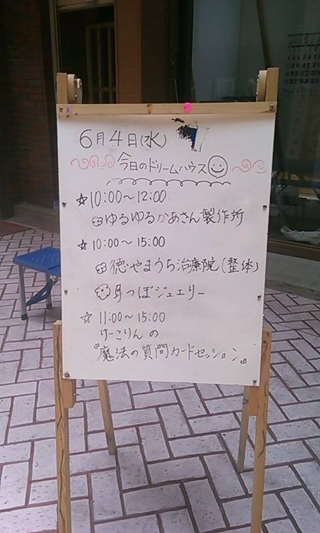 6月4日(水)
今日のドリームハウス
☆10:00〜12:00
ゆるゆるかあさん製作所
☆10:00〜15:00
徳やまうち治療院(整体)
耳つぼジュエリー
☆11:00〜15:00
けーこりんの
『魔法の質問カードセッション』